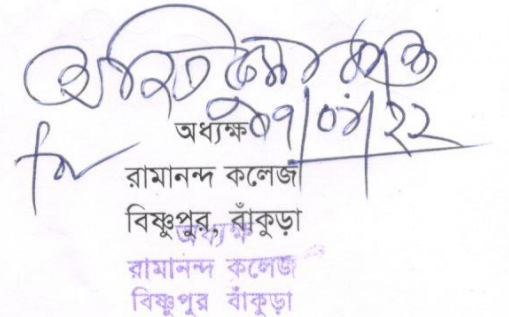 ০৭/০৪/২২
অধ্যক্ষ
রামানন্দ কলেজ
বিষ্ণুপুর, বাঁকুড়া
অধ্যক্ষ
রামানন্দ কলেজ
বিষ্ণুপুর বাঁকুড়া